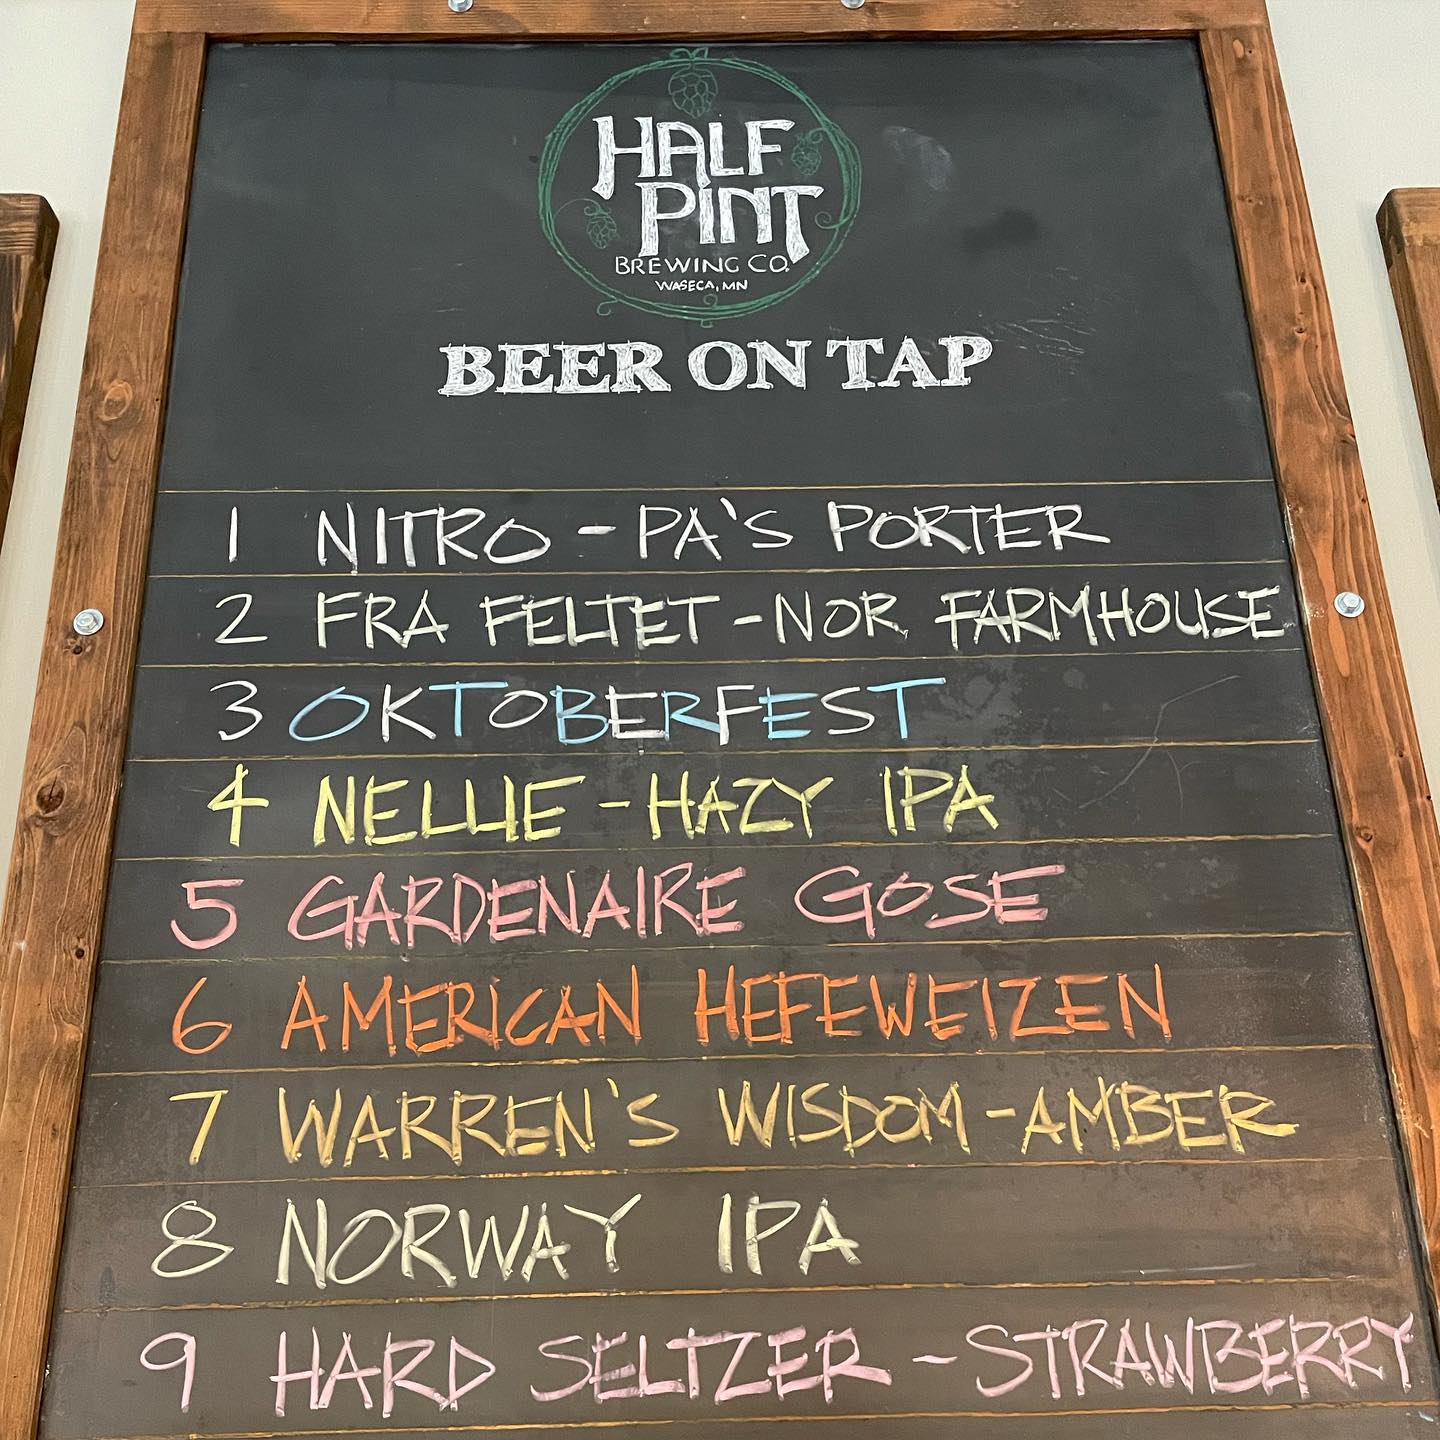 HALF
PINT
BREWING CO.
WASECA, MN
BEER ON TAP
1 NITRO - PA'S PORTER
2 FRA FELTET - NOR. FARMHOUSE
3 OKTOBERFEST
4 NELLIE - HAZY IPA
5 GARDENAIRE GOSE
6 AMERICAN HEFEWEIZEN
7 WARREN'S WISDOM - AMBER
8 NORWAY IPA
9 HARD SELTZER - STRAWBERRY